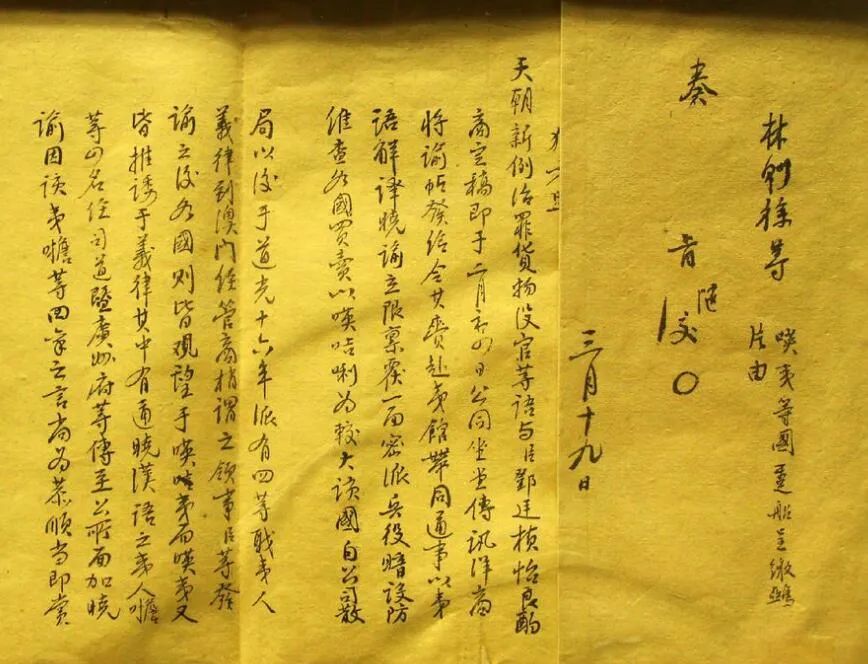 林則徐等
𠸄夷等國躉船呈繳鴉
片由
奏
旨
三月十九日
天朝新例治罪貨物没官等語与臣鄧廷楨怡良酌
商定稿即于二月初四日公同坐堂傳訊洋商
将諭帖發给令其賫赴夷館帶同通事以夷
語解譯曉諭立限稟覆一面密派兵役暗設防
維查各國買賣以𠸄咭唎為較大該國自公司散
局以後于道光十六年派有四等职夷人
義律到澳門經管商梢謂之領事臣等發
諭之後各國則皆觀望于𠸄咭夷而𠸄夷又
皆推諉于義律其中有通曉漢語之夷人噡
等四名經司道暨廣州府等傳至公所面加曉
諭因該夷噡等回禀之言尚为恭順当即赏